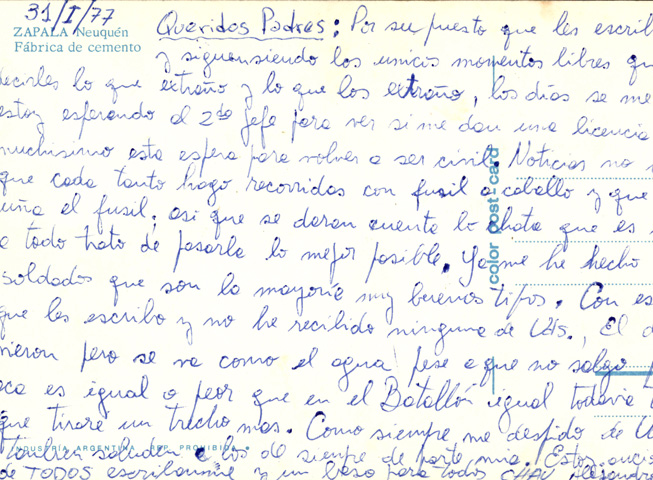 31/I/77
ZAPALA Neuquén
Fábrica de cemento
Queridos Padres: Por su puesto que les escrib
y siguensiendo los unicos momentos libres qu
decirles lo que extraño y lo que los extraño, los días se me
estoy esperando al 2do Jefe para ver si me dan una licencia
muchisimo esta espera para volver a ser civil. Noticias no
que cada tanto hago recorridas con fusil a caballo y que
uña el fusil, asi que se daran cuenta lo chota que es
a todo trato de pasarla lo mejor posible. Ya me he hecho
soldados que son la mayoria muy buenos tipos. Con es
que les escribo y no he recibido ninguna de Uds., El
nieron pero se va como el agua pese a que no salgo
aca es igual o peor que en el Batallón igual todavia
que tirare un trecho mas. Como siempre me despido de U
INDUSTRIA ARGENTINA PROHIBIDA
tambien saluden a los de siempre de parte mia. Estoy
de TODOS escribanme y un beso para todos CHAU Alejandro
color post-card